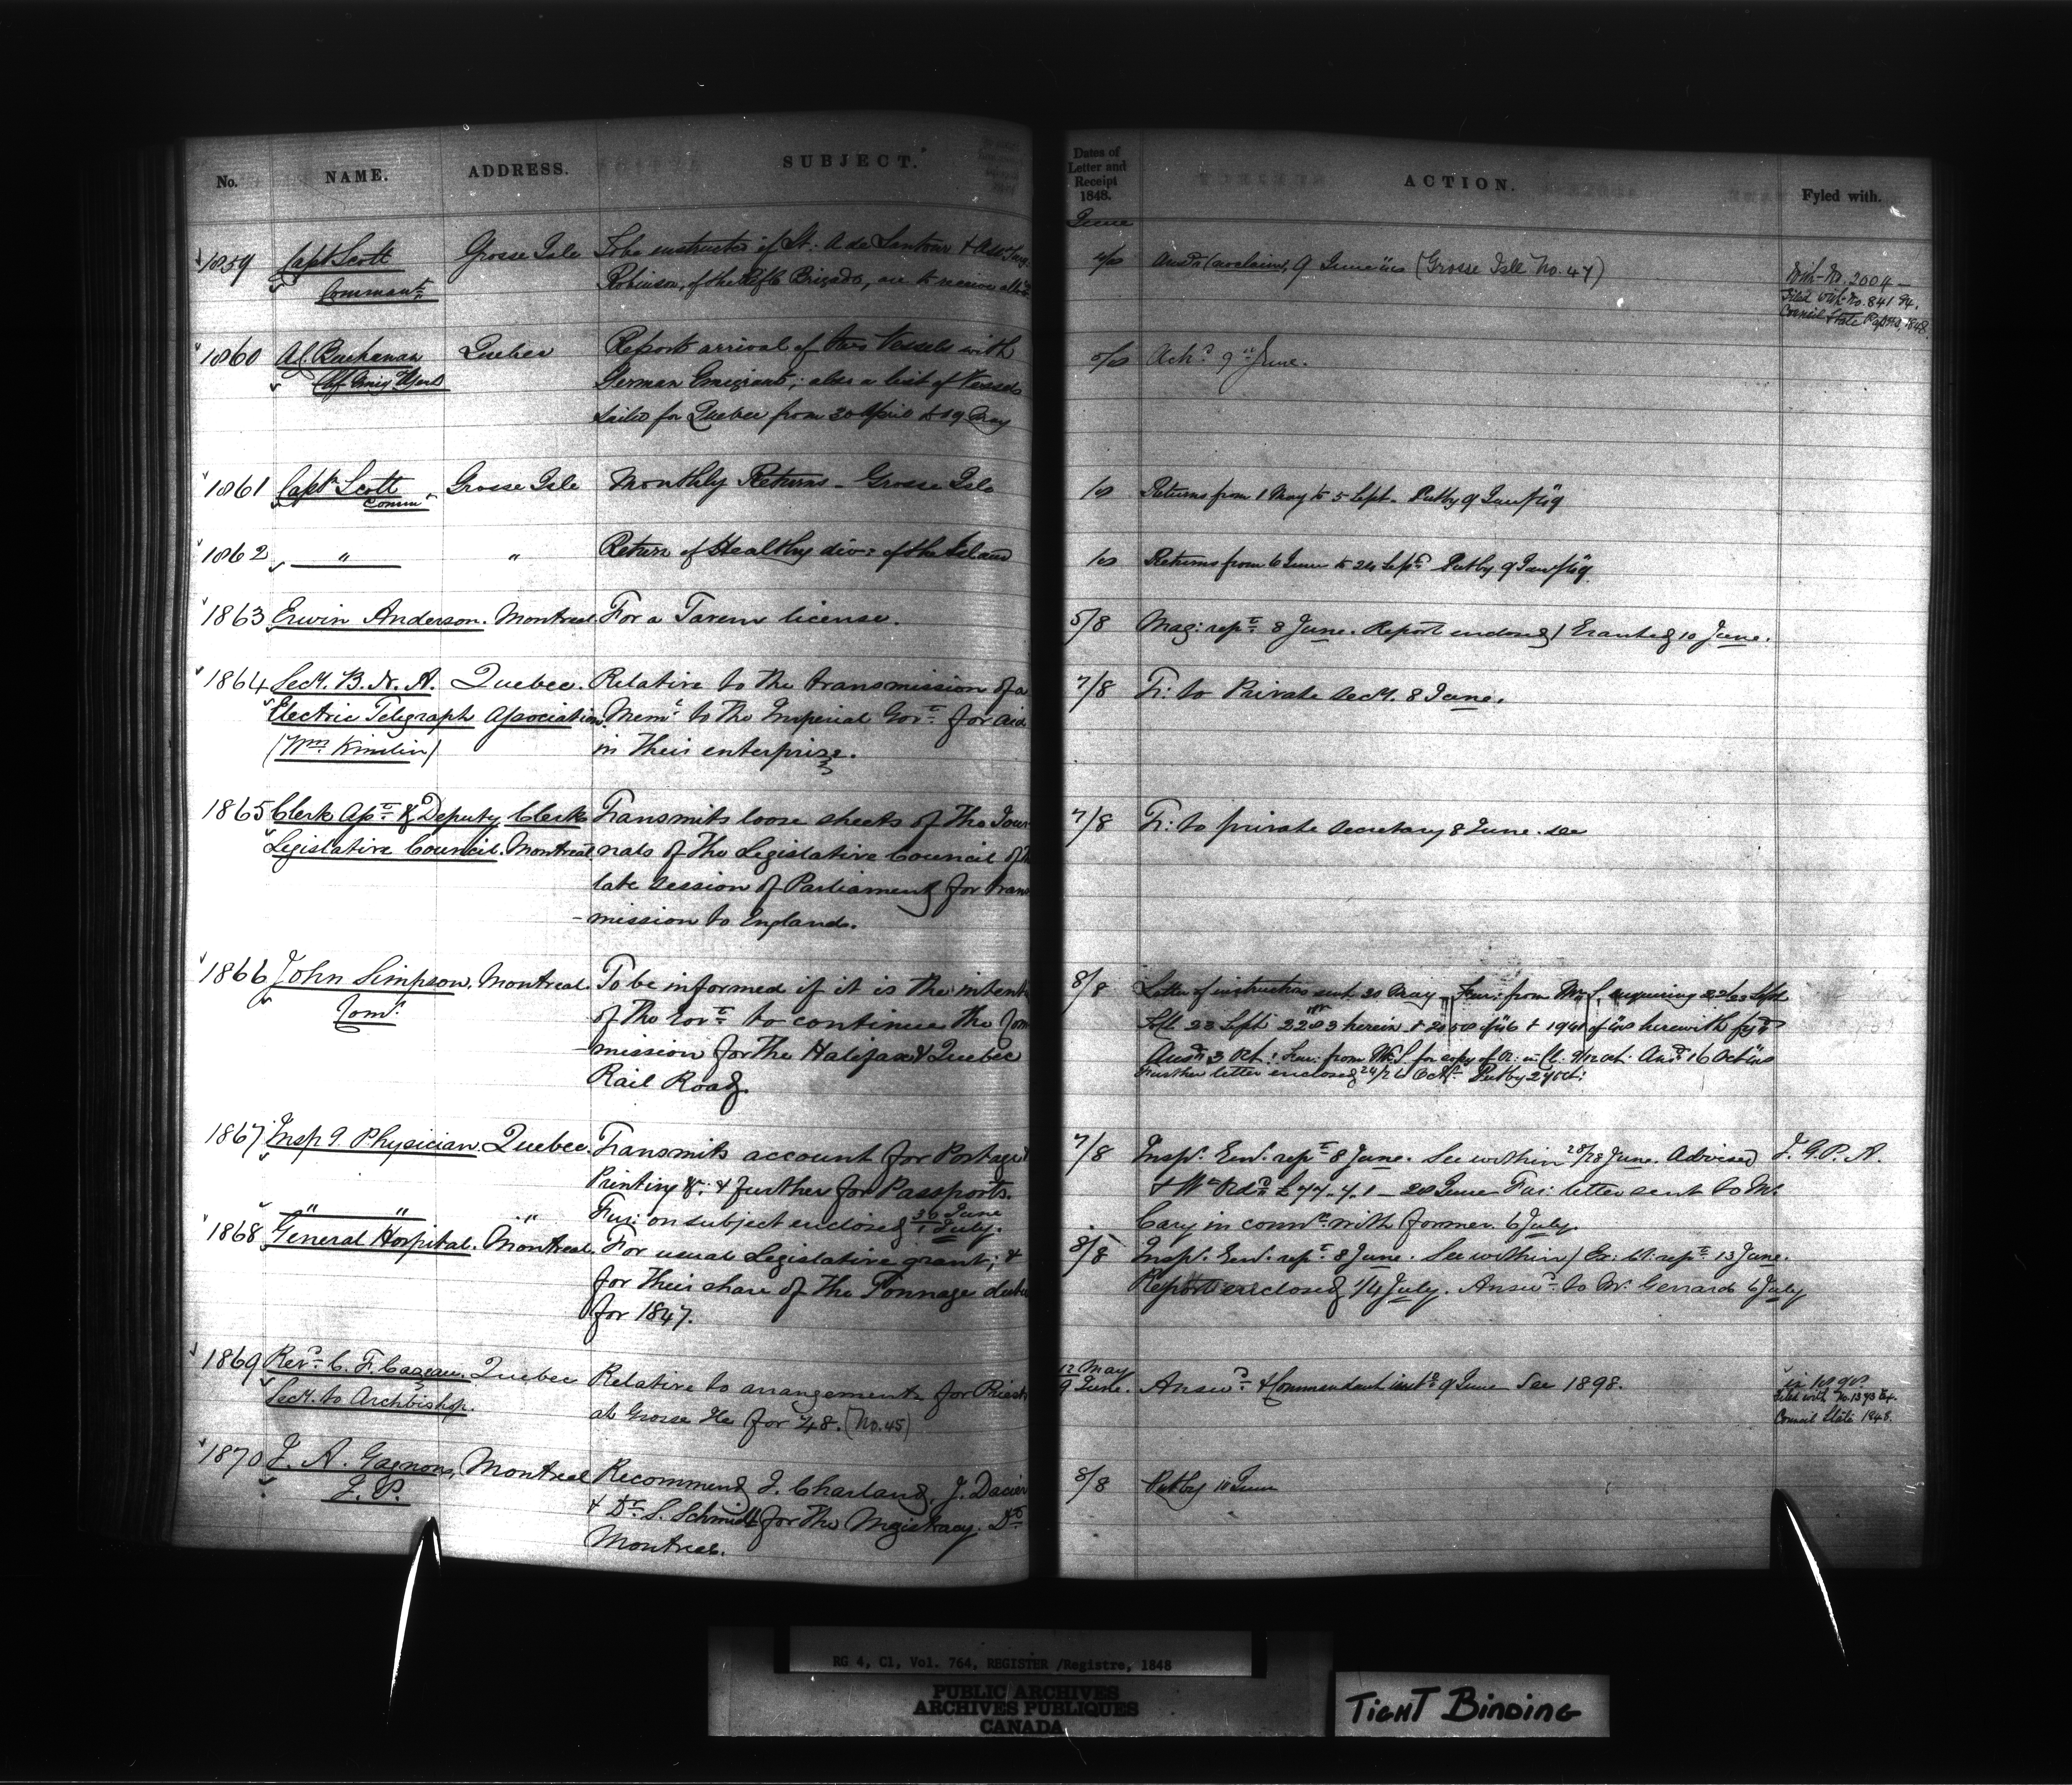 No. NAME. ADDRESS. SUBJECT.
1859 Capt Scott Grosse Isle To be instructed if Lt. A de
Commant Robinson, of the Rifle Brigade, are to receive
1860 A C Buchanan Quebec Reports arrival of two Vessels with
Chf Emig Agent German Emigrants; also a list of Vessels
sailed for Quebec from 30 April to 19 May
1861 Capt Scott Grosse Isle Monthly Returns - Grosse Isle
Comm
1862 " " Return of Healthy divn of the Island
1863 Erwin Anderson. Montreal For a Tavern license.
1864 Secy. B. N. A. Quebec. Relative to the transmission of a
Electric Telegraph Association. Meml to the Imperial Govt for aid
(Wm Kinslin) in their enterprize.
1865 Clerk Asst & Deputy Clerk Transmits loose sheets of the Jour
Legislative Council. Montreal nals of the Legislative Council of
late Session of Parliament for trans
-mission to England.
1866 John Simpson. Montreal. To be informed if it is the intent
Comr. of the Govt to continue the Com
-mission for the Halifax & Quebec
Rail Road.
1867 Inspg Physician. Quebec. Transmits account for Postage
Printing &c; & further for Passports.
" " " Fur: on subject enclosed 30 June / 1 July.
1868 General Hospital. Montreal. For usual Legislative grant; &
for their share of the Tonnage duties
for 1847.
1869 Revd C. F. Cazeau. Quebec Relative to arrangements for Priests
Secy. to Archbishop. at Grosse Ile for 48. (No. 45)
1870 J. A. Gagnon, Montreal Recommend J. Charland, J. Dacier
J. P. & Dr S. Schmidt for the Magistracy. Do
Montreal.
Dates of Letter and Receipt 1848. ACTION. Fyled with.
June
9 June (Grosse Isle No. 47) With No. 2004 -
Filed with No. 841
Council State 1848
Ackd 9 June.
Returns from 1 May to 5 Sept. Putby 9 Jany/49
Returns from 6 June to 24 Sept. Putby 9 Jany/49.
5/8 Mag: rept 8 June. Report endorsed / Granted 10 June.
7/8 Tr: to Private Secy. 8 June.
7/8 Tr: to private Secretary 8 June. see
8/8 Letter of instruction sent 20 May. Fur: from Mr S. enquiring 22/23 Sept
23 Sept 2203 herein & herewith
Ansd 3 Oct: Fur: from Mr S. for copy of 9/12 Oct: Ansd 16 Oct
Further letter enclosed 24/26 Oct. Putby 27 Oct:
7/8 Insp. Genl. rept 8 June. See within 28/28 June. Advised J. G. P. A.
£77. 4. 1 - 28 June Fur: letter sent to Mr
Cary in connn with former. 6 July.
8/8 Insp. Genl. rept 8 June. See within / Ex: Cl: rept 13 June.
Report enclosed 1/4 July. Answd to Mr Gerrard 6 July
12 May
9 June. Answd & Commandant instd 9 June See 1898. in 1898.
Filed with No. 1393 Ex.
Council State 1848.
8/8 Putby 10 June
RG 4, C1, Vol. 764, REGISTER /Registre, 1848
PUBLIC ARCHIVES
ARCHIVES PUBLIQUES
CANADA
TIGHT BINDING